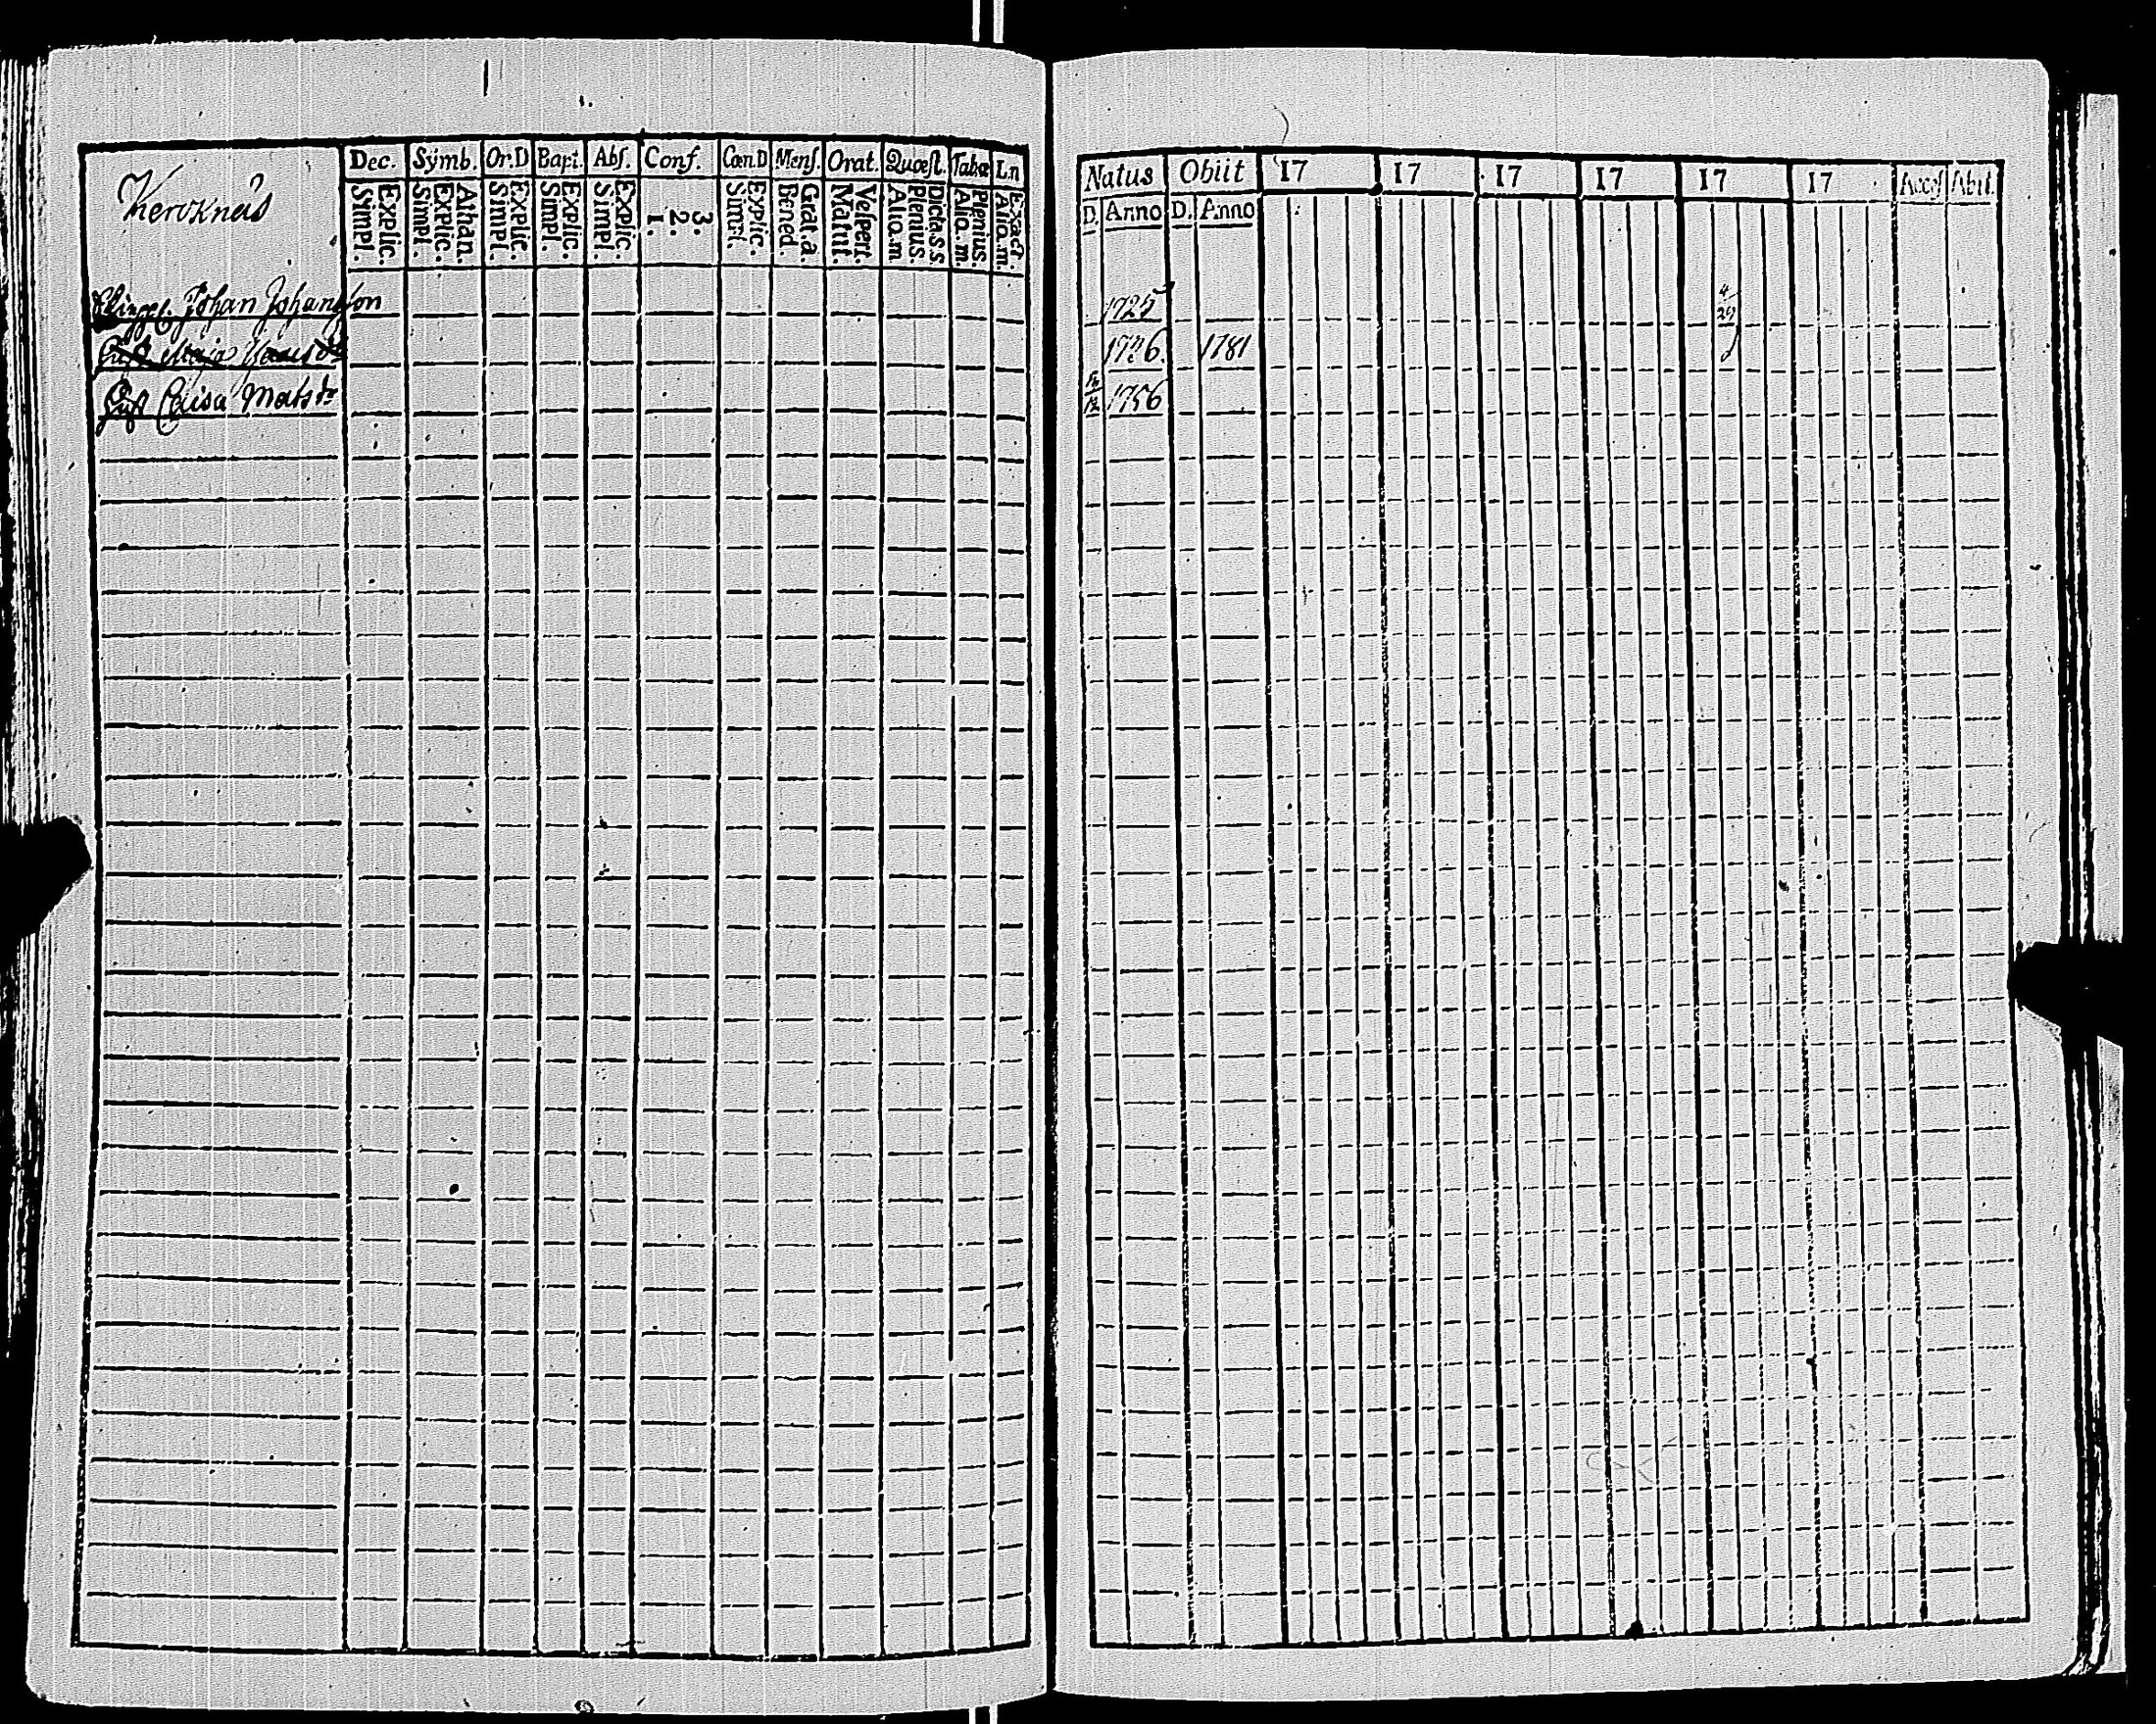 Dec. Symb. Or.D Bapt. Abs. Conf. Cœn.D Mens. Orat. Quæst. Tabœ L.n
Explic. Simpl. Athan. Explic. Simpl. Explic. Simpl. Explic. Simpl. Explic. Simpl. 3. 2. 1. Explic. Simpl. Grat.a. Bened. Vespert. Matut. Dicta.s.s. Plenius. Alio.m Plenius. Alio.m. Exact. Alio.m.
Natus Obiit 17 17 17 17 17 17 Acces Abit.
D. Anno D. Anno
Johan Johansson 1725 4/29
Hust Maja 1726. 1781
Hust Caisa Mats dr 1756